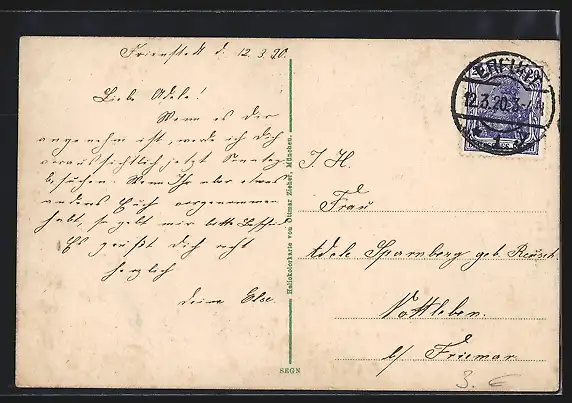 Frienstedt d. 12.3.20.
Liebe Adele!
Wenn es Dir
angenehm ist, werde ich Dich
voraussichtlich jetzt Sonntag
besuchen. Wenn Ihr aber etwas
anderes Euch vorgenommen
habt, so gebt mir bitte Bescheid
Es grüßt Dich recht
herzlich
Deine Else.
Heliokolorkarte von Ottmar Zieher, München.
SEGN
I. H.
Frau
Adele Spamberg geb. Reusch
Nottleben.
b/ Friemar
12.3.20.3-4
3.- €